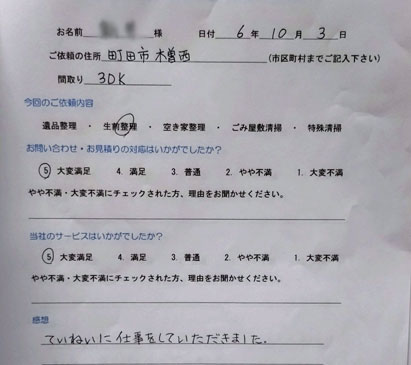 お名前 様 日付 6年 10月 3日
ご依頼の住所 町田市木曽西 (市区町村までご記入下さい)
間取り 3DK
今回のご依頼内容
遺品整理 ・ 生前整理 ・ 空き家整理 ・ ごみ屋敷清掃 ・ 特殊清掃
お問い合わせ・お見積りの対応はいかがでしたか?
5 大変満足 4. 満足 3. 普通 2. やや不満 1. 大変不満
やや不満・大変不満にチェックされた方、理由をお聞かせください。
当社のサービスはいかがでしたか?
5 大変満足 4. 満足 3. 普通 2. やや不満 1. 大変不満
やや不満・大変不満にチェックされた方、理由をお聞かせください。
感想
ていねいに仕事をしていただきました。